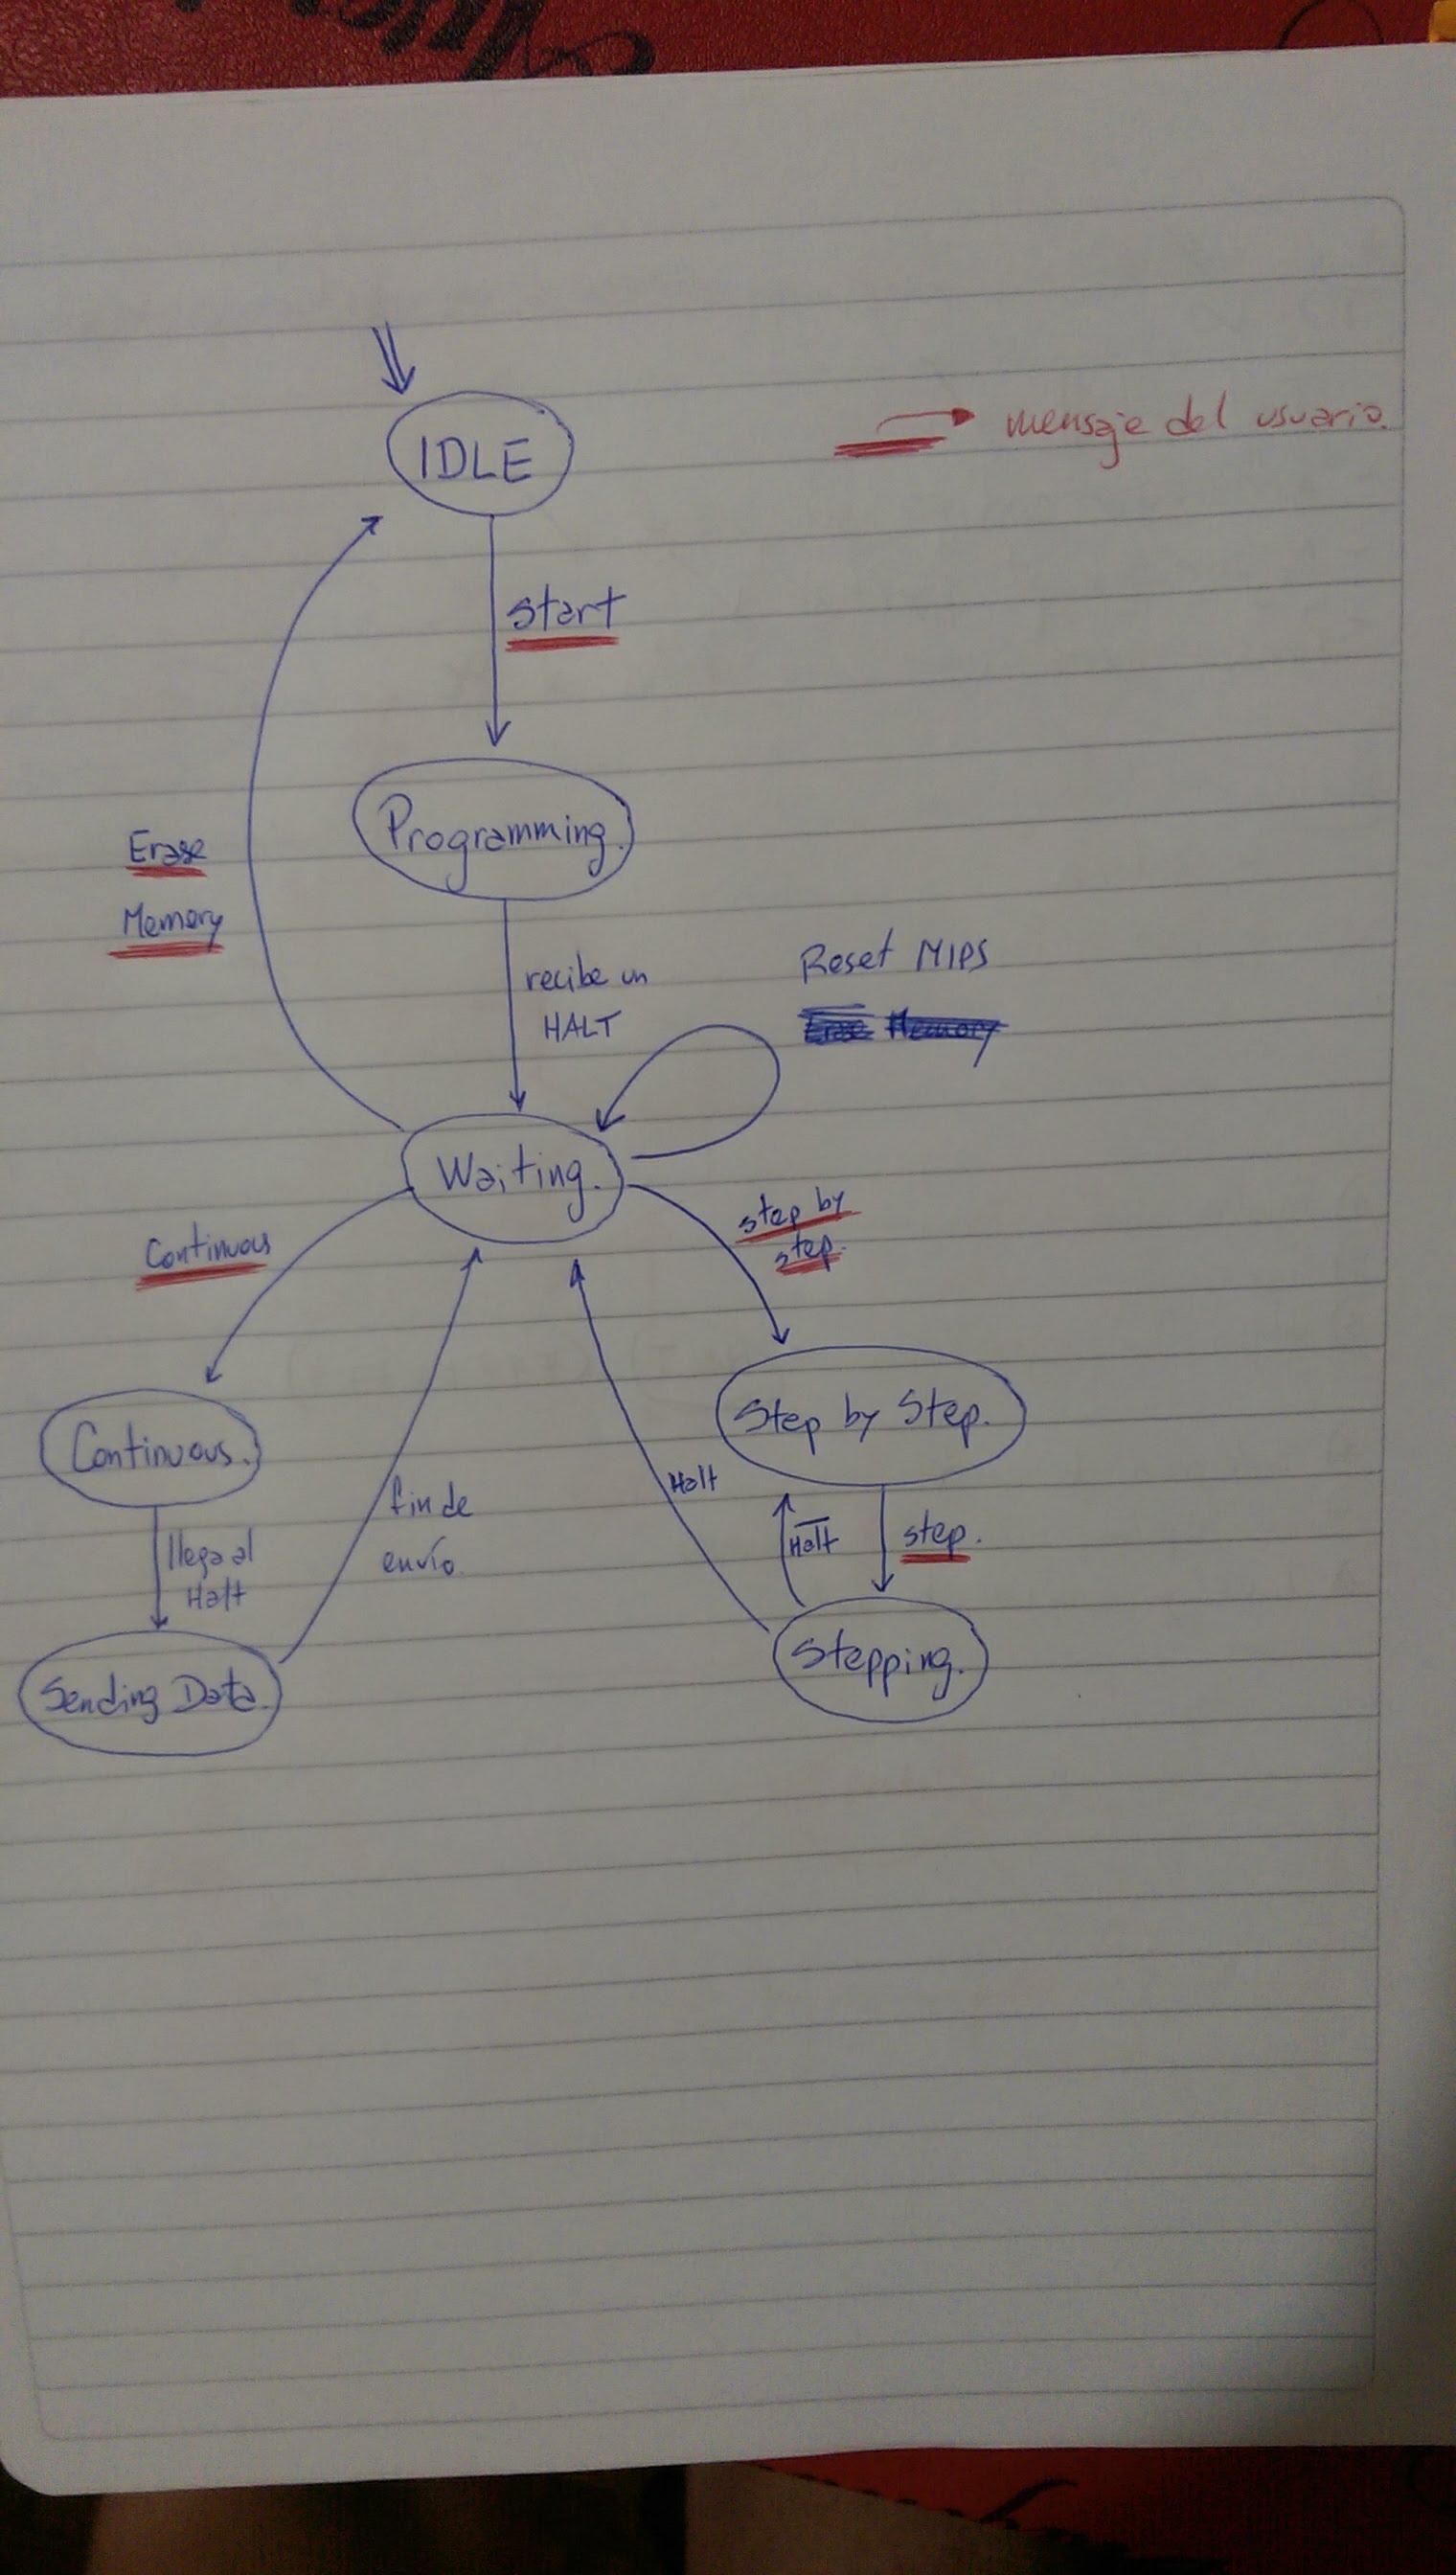 IDLE
mensaje del usuario.
Start
Programming.
Erase
Memory
recibe un
HALT
Reset MIPS
Erase Memory
Waiting.
step by
step.
Continuous
Step by Step.
Continuous.
Halt
fin de
envío.
Halt
step.
llega al
Halt
Stepping.
Sending Data.